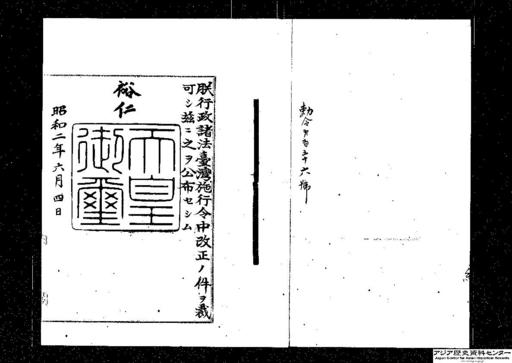 勅令第百五十六號
朕行政諸法臺灣施行令中改正ノ件ヲ裁
可シ茲ニ之ヲ公布セシム
裕仁
天皇
御璽
昭和二年六月四日
アジア歴史資料センター
Japan Center for Asian Historical Records